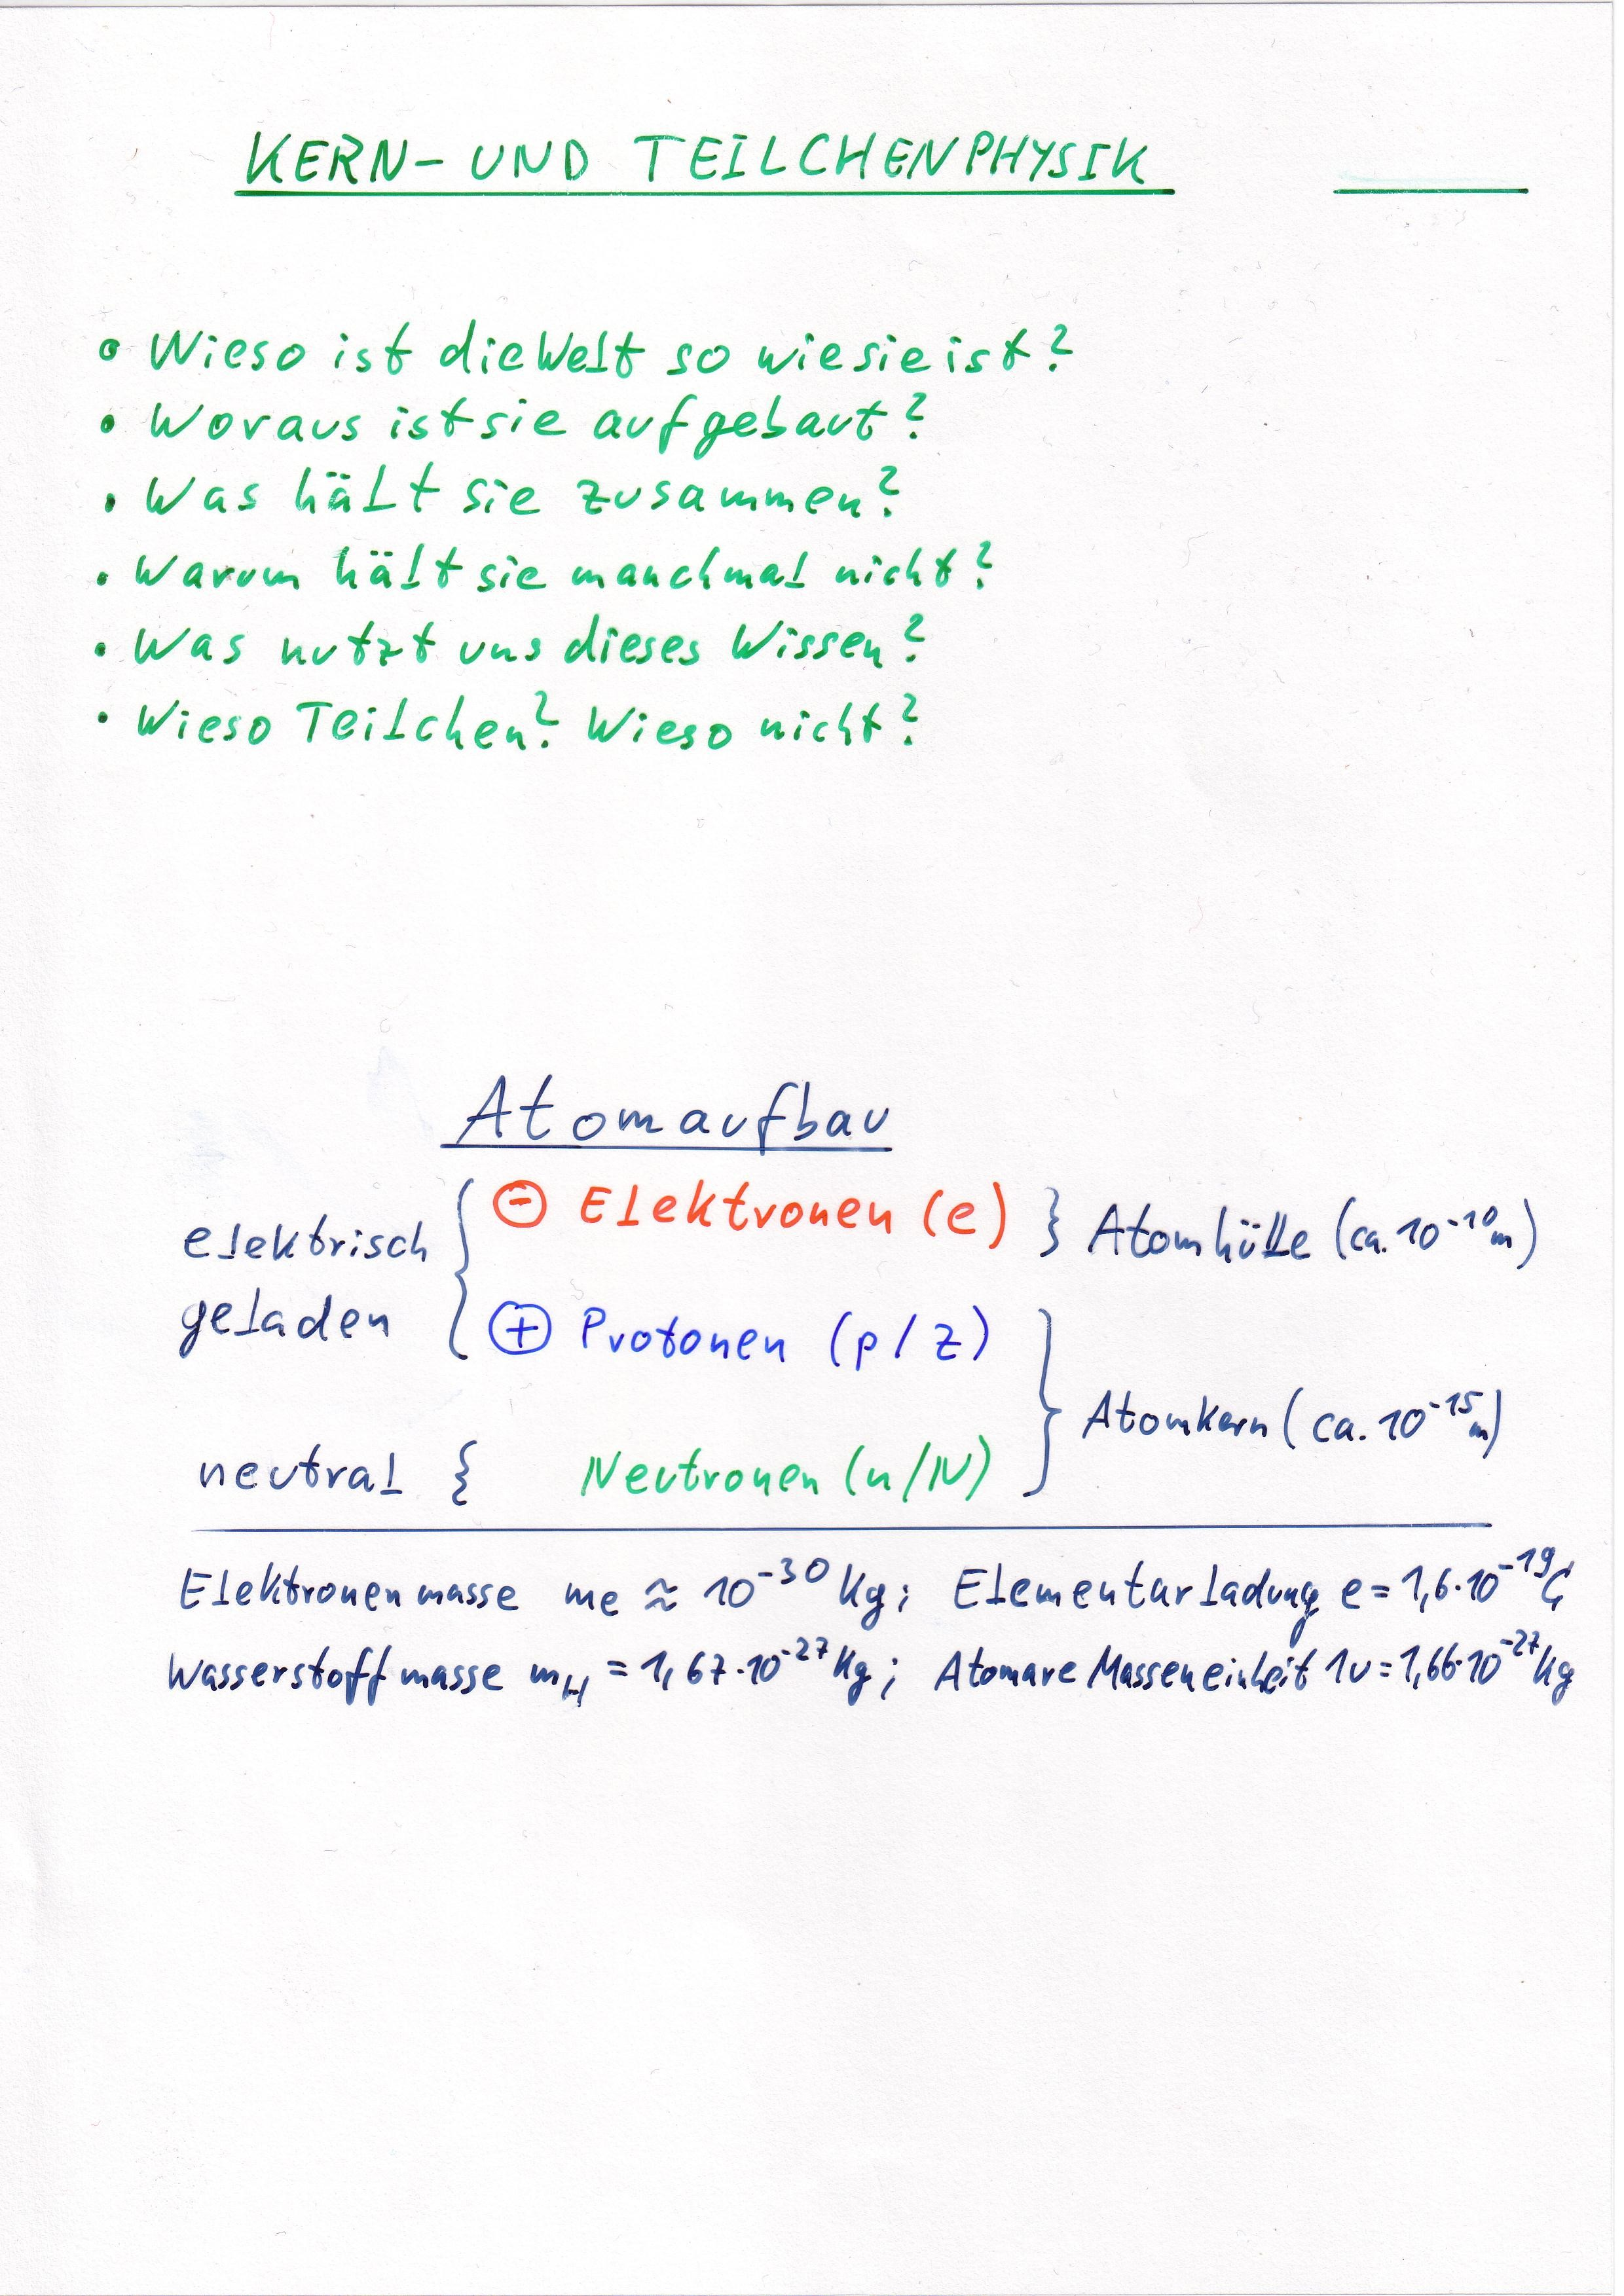 KERN- UND TEILCHENPHYSIK
• Wieso ist die Welt so wie sie ist?
• Woraus ist sie aufgebaut?
• Was hält sie zusammen?
• Warum hält sie manchmal nicht?
• Was nutzt uns dieses Wissen?
• Wieso Teilchen? Wieso nicht?
Atomaufbau
elektrisch geladen { ⊖ Elektronen (e) } Atomhülle (ca. 10⁻¹⁰m)
⊕ Protonen (p/z)
neutral { Neutronen (n/N) } Atomkern (ca. 10⁻¹⁵m)
Elektronenmasse me ≈ 10⁻³⁰ kg; Elementarladung e = 1,6·10⁻¹⁹C
Wasserstoffmasse mH = 1,67·10⁻²⁷ kg; Atomare Masseneinheit 1u = 1,66·10⁻²⁷kg